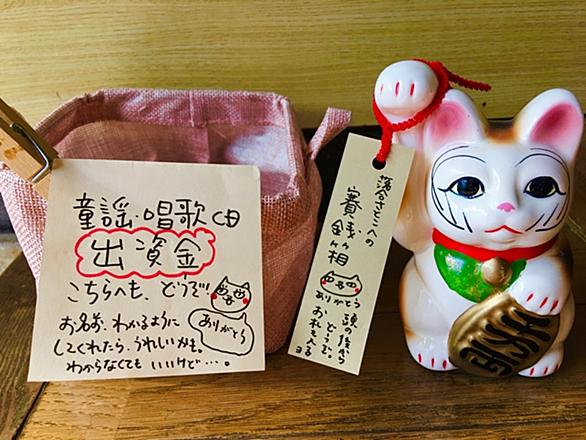 童謡・唱歌CD
出資金
こちらへも、どうぞ!!
お名前、わかるように
してくれたら、うれしいかも。
わからなくてもいいけど…。
ありがとう
落合さとこへの
賽銭箱
ありがとう
頭の後ろへ
どうぞ。
お札も入るヨ